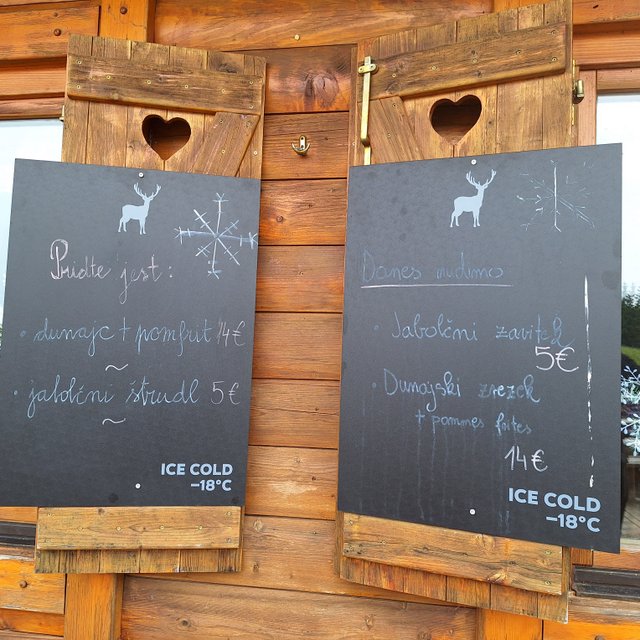 Pridte jest:
• dunajc + pomfrit 14€
~
• jabolčni štrudl 5€
~
ICE COLD
–18°C
Danes nudimo
• Jabolčni zavitek
5€
• Dunajski zrezek
+ pommes frites
14€
ICE COLD
–18°C